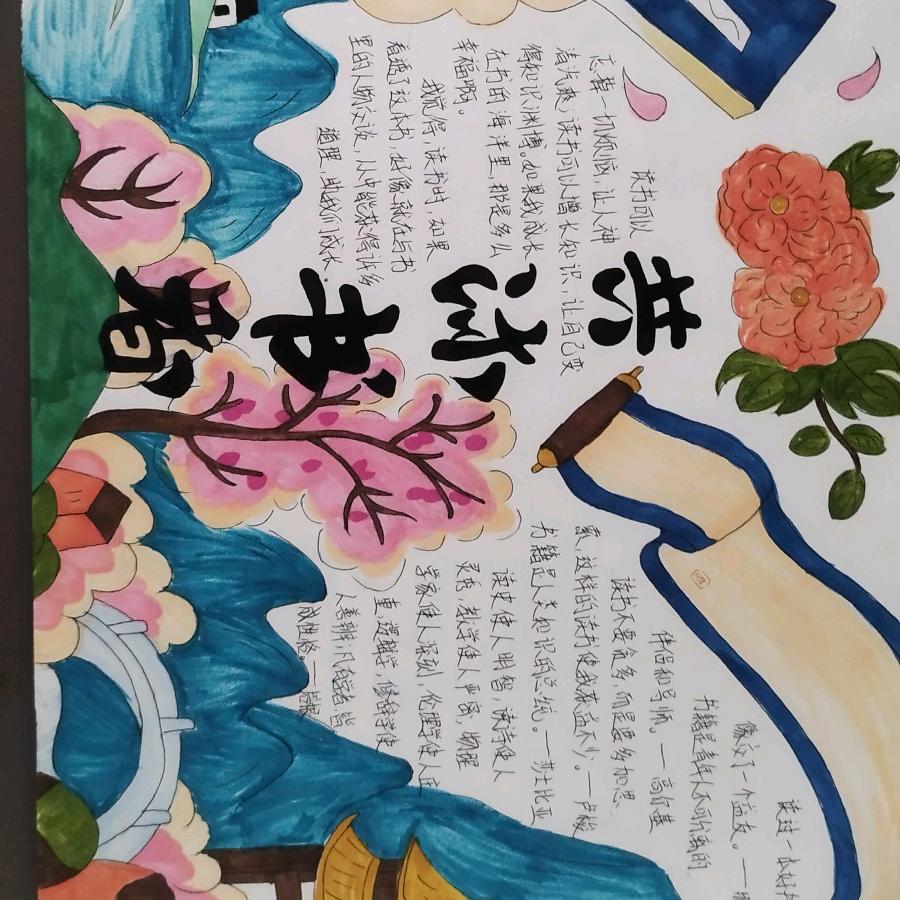 共沐书香
读书可以
忘掉一切烦恼，让人神
高气爽，读书可以增长知识，让自己变
得知识渊博。如果我成长
在书的海洋里，那是多么
幸福啊。
我觉得，读书时，如果
看透了这本书，好像就在与书
里的人物交谈，从中能获得许多
道理，助我们成长。
读过一本好书
像交了一个益友。——
书籍是青年人不可分离的
伴侣和导师。——高尔基
读书不要贪多，而是要多加思
索，这样的读书使我获益不少。——卢梭
书籍是人类知识的总统。——莎士比亚
读史使人明智，读诗使人
灵秀，数学使人严密，物理
学家使人深刻，伦理学使人庄
重，逻辑学、修辞学使
人善辩，凡有学者，皆
成性格。——培根